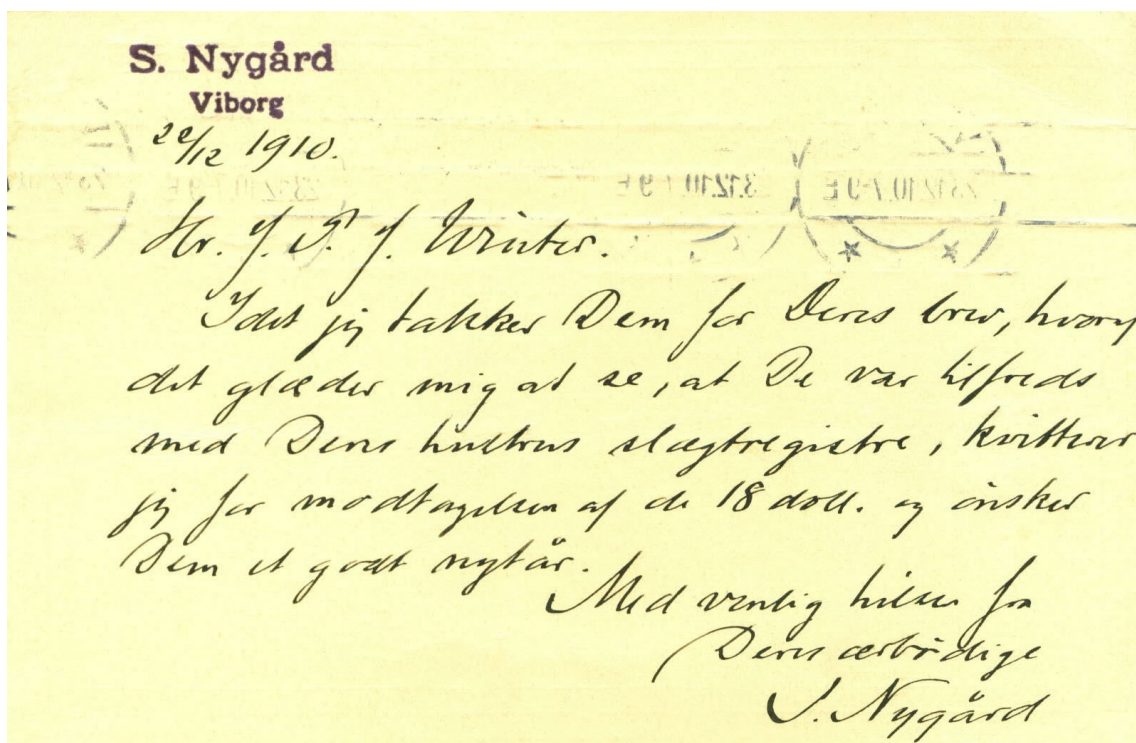 S. Nygård
Viborg
22/12 1910.
23.12.10. 7-9 E 23.12.10. 7-9 E
Hr. J. P. J. Winter.
Idet jeg takker Dem for Deres brev, hvoraf
det glæder mig at se, at De var tilfreds
med Deres hustrus slægtregistre, kvitterer
jeg for modtagelsen af de 18 doll. og ønsker
Dem et godt nytår.
Med venlig hilsen fra
Deres ærbødige
S. Nygård